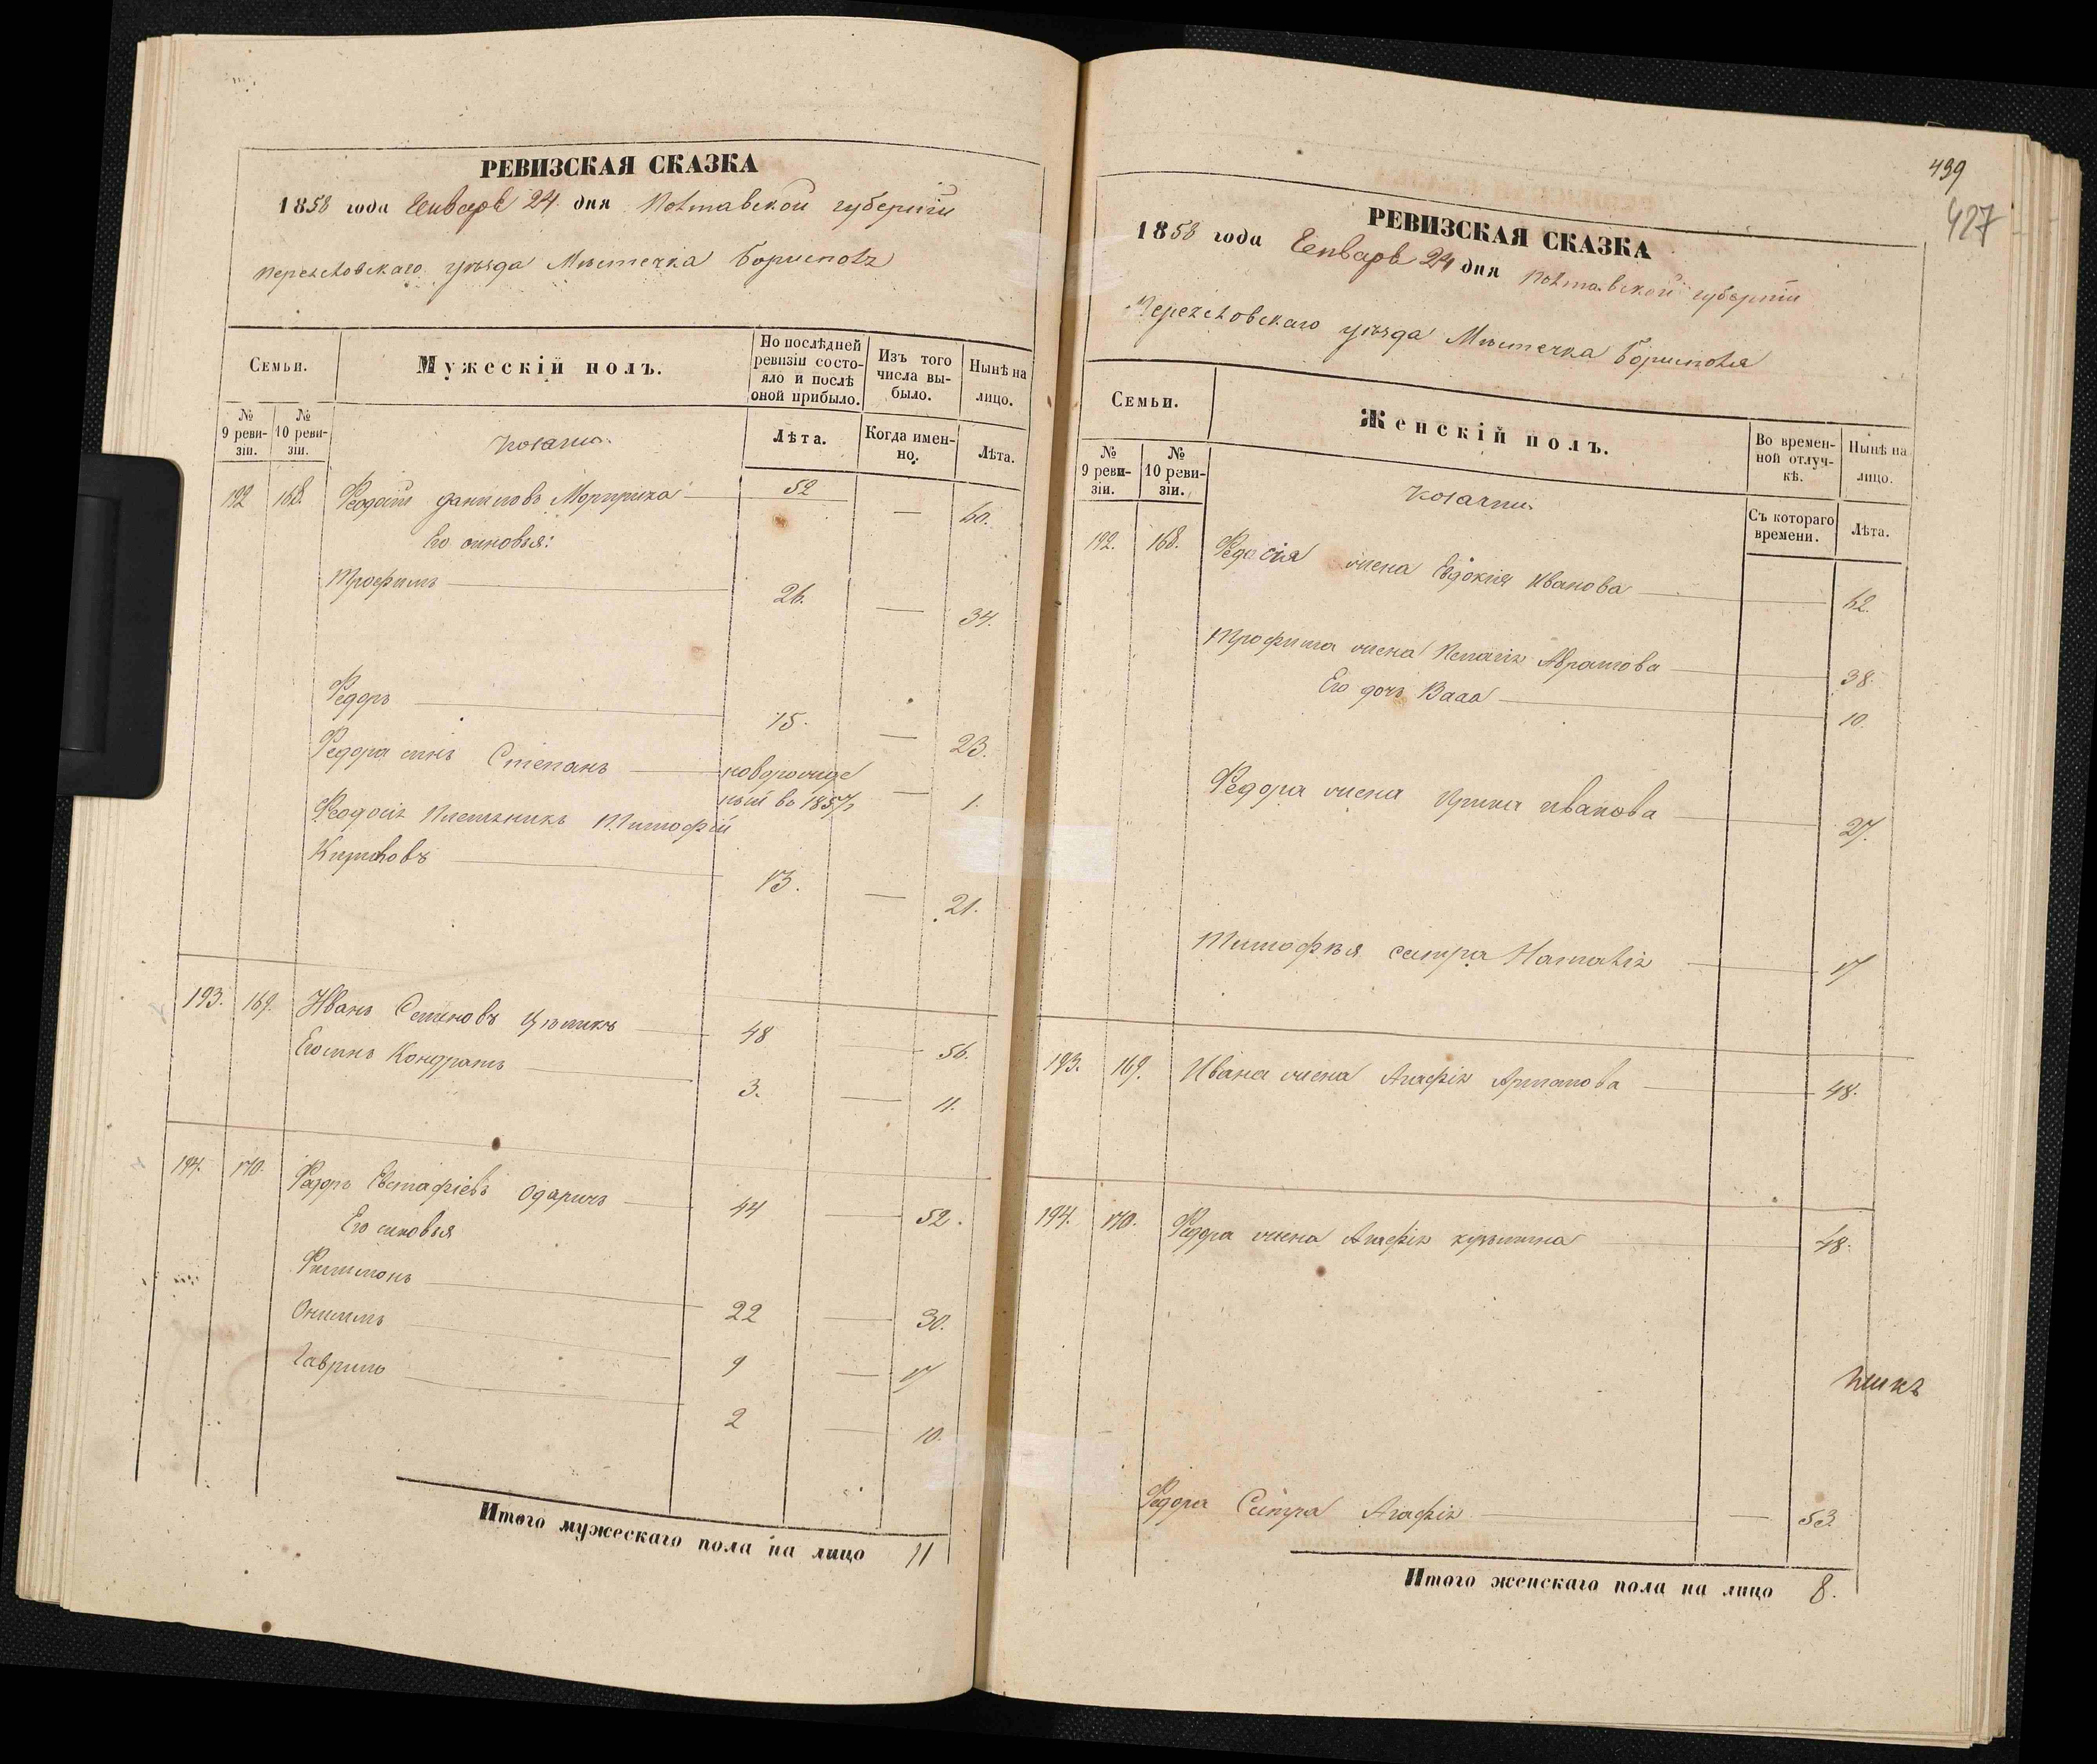 РЕВИЗСКАЯ СКАЗКА
1858 года Генваря 24 дня Полтавской губернии
переяловскаго уѣзда Мѣстечка Борисполя
Семьи.
Мужескій полъ.
По послѣдней ревизіи состояло и послѣ оной прибыло.
Изъ того числа выбыло.
Нынѣ на лицо.
№ 9 ревизіи.
№ 10 ревизіи.
козаки.
Лѣта.
Когда именно.
Лѣта.
192 168. Феодосій даниловъ 52 — 60.
Его сыновья:
Трофимъ 26. — 34.
Федоръ 15. — 23.
Федора сынъ Степанъ новорожденный въ 1857 — 1.
Феодосія племянникъ Тимофѣй
Кириловъ 13. — 21.
193. 169. Иванъ Семеновъ 48 — 56.
Его сынъ Кондратъ 3. — 11.
194. 170. Федоръ Евстафіевъ Одаричъ 44 — 52.
Его сыновья
Филимонъ 22 — 30.
Онисимъ 9 — 17
Гаврило 2 — 10.
Итого мужескаго пола на лицо 11
439
427
РЕВИЗСКАЯ СКАЗКА
1858 года Генваря 24 дня Полтавской губернии
Переяловскаго уѣзда Мѣстечка Борисполя
Семьи.
Женскій полъ.
Во временной отлучкѣ.
Нынѣ на лицо.
№ 9 ревизіи.
№ 10 ревизіи.
козачки.
Съ котораго времени.
Лѣта.
192. 168. Федосія жена Евдокія Иванова 62.
Трофима жена Авратова 38.
Его дочь 10.
Федора жена Ирина иванова 27.
Тимофѣя сестра Наталія 17
193. 169. Ивана жена Агафія 48.
194. 170. Федора жена Агафія 48.
Федора Сестра Агафія — 53.
Итого женскаго пола на лицо 8.